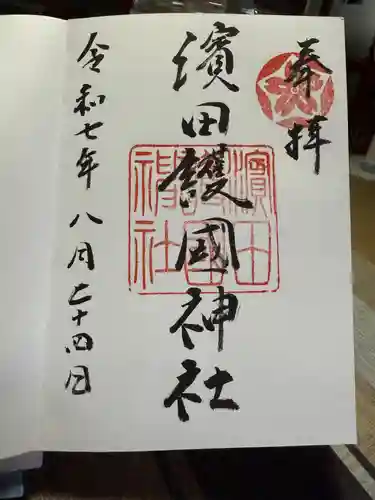 奉拝
濱田護國神社
濱田護国神社
令和七年八月二十四日